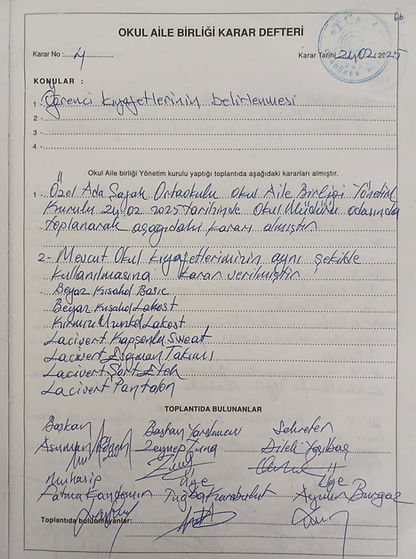 OKUL AİLE BİRLİĞİ KARAR DEFTERİ
Karar No : 4
Karar Tarihi 24.02.2025
KONULAR :
1 - Öğrenci kıyafetlerinin belirlenmesi
2 -
3 -
4 -
Okul Aile birliği Yönetim kurulu yaptığı toplantıda aşağıdaki kararları almıştır.
1 - Özel Ada Şafak Ortaokulu Okul Aile Birliği Yönetim
Kurulu 24.02.2025 tarihinde Okul Müdürü odasında
toplanarak aşağıdaki kararı almıştır
2- Mevcut Okul kıyafetlerimizin aynı şekilde
kullanılmasına karar verilmiştir
- Beyaz Kısakol Basic
Beyaz Kısakol Lakost
Kırmızı Uzunkol Lakost
Lacivert Kapşonlu Sweat
Lacivert Eşofman Takımı
Lacivert Şort Etek
Lacivert Pantolon
TOPLANTIDA BULUNANLAR
Başkan Başkan Yardımcısı Sekreter
Asuman Zeynep Dilek
Muhasip Üye Üye
Fatma Tuğba Karabulut Burgaz
Toplantıda bulunmayanlar: